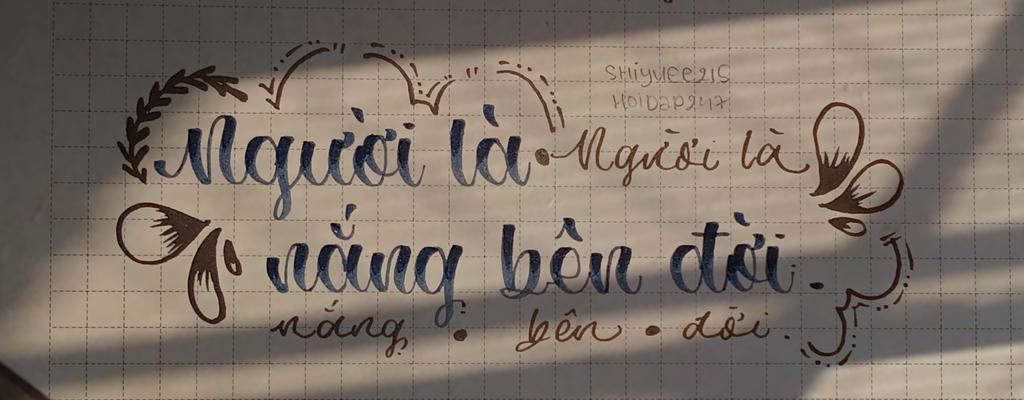 shiyuee215
HOIDAP247
Người là • Người là
nắng bên đời.
nắng • bên • đời.